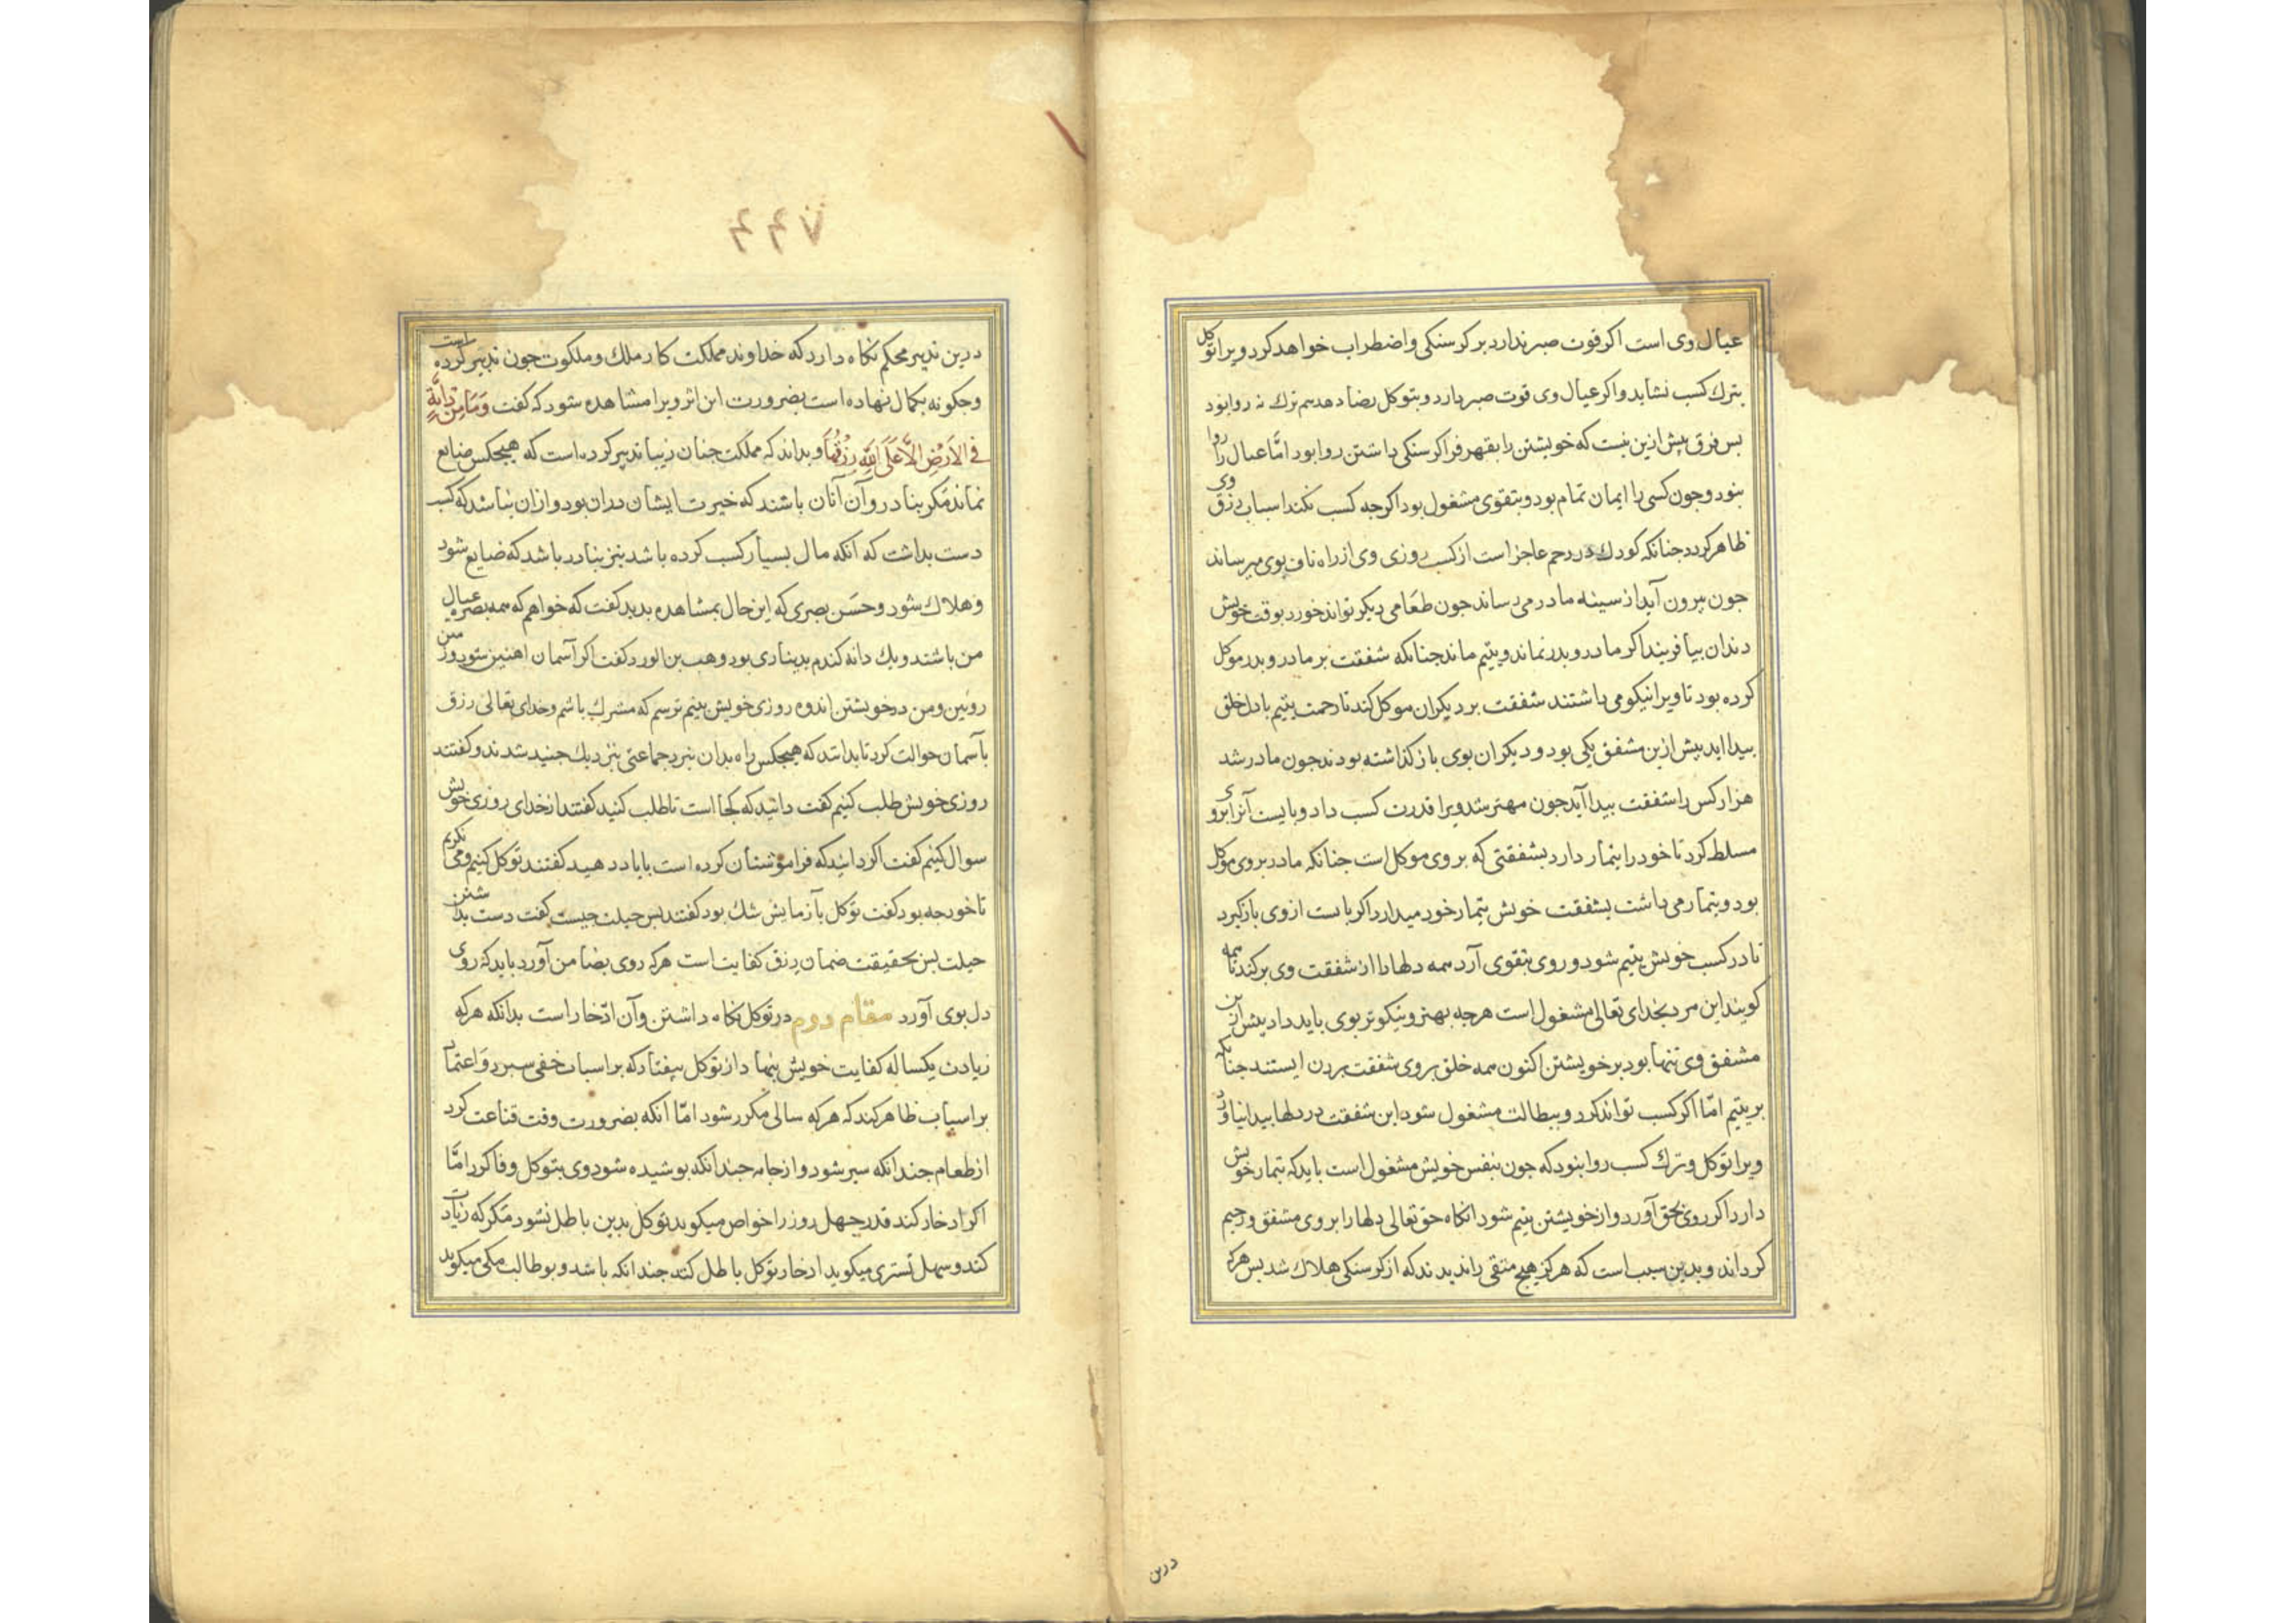 عیال وی است اکر قوت صبر ندارد بر کرسنکی و اضطراب خواهد کرد ویرا توکل
بترك کسب نشاید و اکر عیال وی قوت صبر دارد و بتوکل رضا دهد هم ترك روا بود
بس فرق بیش ازین نیست که خویشتن را بقهر فرا کرسنکی داشتن روا بود امّا عیال را روا
نبود و جون کسی را ایمان تمام بود و بتقوی مشغول بود اکرجه کسب نکند اسباب رزق وی
ظاهر کردد جنانکه کودك در رحم عاجز است از کسب روزی وی از راه ناف بوی میرساند
جون بیرون آید از سینه مادر می رساند جون طعامی دیکر تواند خورد بوقت خویش
دندان بیافریند اکر مادر و بدر نماند و یتیم ماند جنانکه شفقت بر مادر و بدر موکل
کرده بود تا ویرا نیکو می داشتند شفقت بر دیکران موکل کند تا رحمت یتیم با دل خلق
بیدا اید بیش ازین مشفق یکی بود و دیکران بوی باز کذاشته بودند جون مادر شد
هزار کس را شفقت بیدا آید جون مهتر شد ویرا قدرت کسب داد و بایست آنرا بروی
مسلط کرد تا خود را تیمار دارد بشفقتی که بر وی موکل است جنانکه مادر بر وی موکل
بود و تیمار می داشت بشفقت خویش تیمار خود میدارد اکر بایست از وی باز کیرد
تا در کسب خویش یتیم شود و روی بتقوی آرد همه دلها را از شفقت وی بر کند تا همه
کویند این مرد بخدای تعالی مشغول است هرجه بهتر و نیکوتر بوی باید داد بیش ازین
مشفق وی تنها بود بر خویشتن اکنون همه خلق بر وی شفقت بردن ایستند جنانکه
بر یتیم امّا اکر کسب تواند کرد و ببطالت مشغول شود این شفقت در دلها بیدا نیاورد
ویرا توکل و ترك کسب روا نبود که جون بنفس خویش مشغول است باید که تیمار خویش
دارد اکر روی بحق آورد و از خویشتن یتیم شود انکاه حق تعالی دلها را بر وی مشفق و رحیم
کرداند و بدین سبب است که هرکز هیج متقی را ندیدند که از کرسنکی هلاك شد بس هرکه
درین
۴۴۷
درین تدبیر محکم نکاه دارد که خداوند مملکت کار ملك و ملکوت جون تدبیر کرده است
و جکونه بکمال نهاده است بضرورت این اثر ویرا مشاهده شود که کفت وَمَا مِن دَابَّةٍ
فِي الاَرْضِ اِلاَّ عَلَى اللّٰهِ رِزْقُهَا و بداند که مملکت جنان زیبا تدبیر کرده است که هیجکس ضایع
نماند مکر بنادر و آن آنان باشند که خیرت ایشان دران بود و ازان نباشد که کسب
دست بداشت که آنکه مال بسیار کسب کرده باشد نیز بنادر باشد که ضایع شود
و هلاك شود و حسَن بصری که این حال بمشاهده بدید کفت که خواهم که همه بصره عیال
من باشند و یك دانه کندم بدیناری بود و وهب بن الورد کفت اکر آسمان اهنین شود و زمین
رویین و من در خویشتن اندوه روزی خویش بینم ترسم که مشرك باشم و خدای تعالی رزق
بآسمان حوالت کرد تا بدانند که هیجکس راه بدان نبرد جماعتی بنزدیك جنید شدند و کفتند
روزی خویش طلب کنیم کفت دانید که کجا است تا طلب کنید کفتند از خدای روزی خویش
سوال کنیم کفت اکر دانید که فراموشتان کرده است با یاد دهید کفتند توکل کنیم و می نکریم
تا خود جه بود کفت توکل بآزمایش شك بود کفتند بس حیلت جیست کفت دست بداشتن
حیلت بس بحقیقت ضمان رزق کفایت است هرکه روی بضامن آورد باید که روی
دل بوی آورد مقام دوم در توکل نکاه داشتن و آن ادّخار است بدانکه هرکه
زیادت یکساله کفایت خویش بنهاد از توکل بیفتاد که بر اسباب خفی سبرد و اعتماد
بر اسباب ظاهر کند که هرکه سالی مکرر شود امّا آنکه بضرورت وقت قناعت کرد
از طعام جندانکه سیر شود و از جامه جندانکه بوشیده شود وی بتوکل وفا کرد امّا
اکر ادخار کند قدر جهل روز را خواص میکوید توکل بدین باطل نشود مکر که زیادت
کند و سهل تستری میکوید ادخار توکل باطل کند جندانکه باشد و بو طالب مکی میکوید